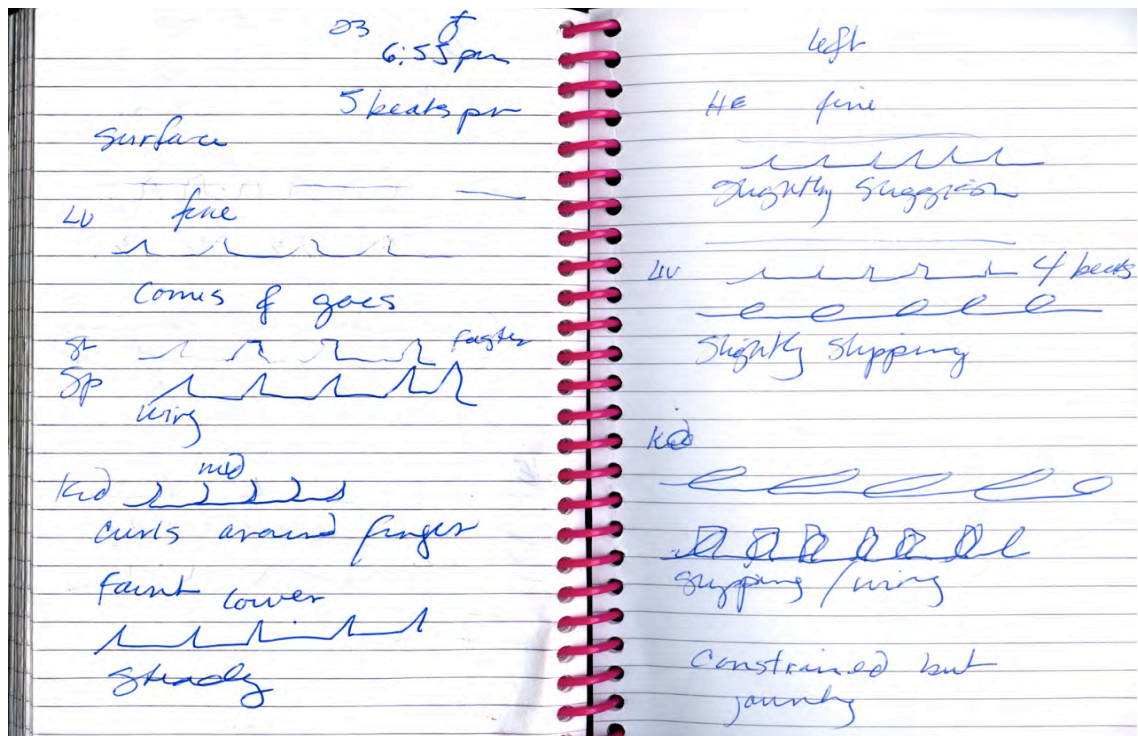 6:55 pm
5 beats pr
surface
LU fine
comes & goes
faster
Sp
wiry
Kid med
curls around finger
faint lower
steady
left
HE fine
slightly sluggish
LIV 4 beats
slightly slipping
Kid
slipping / wiry
constrained but
jaunty